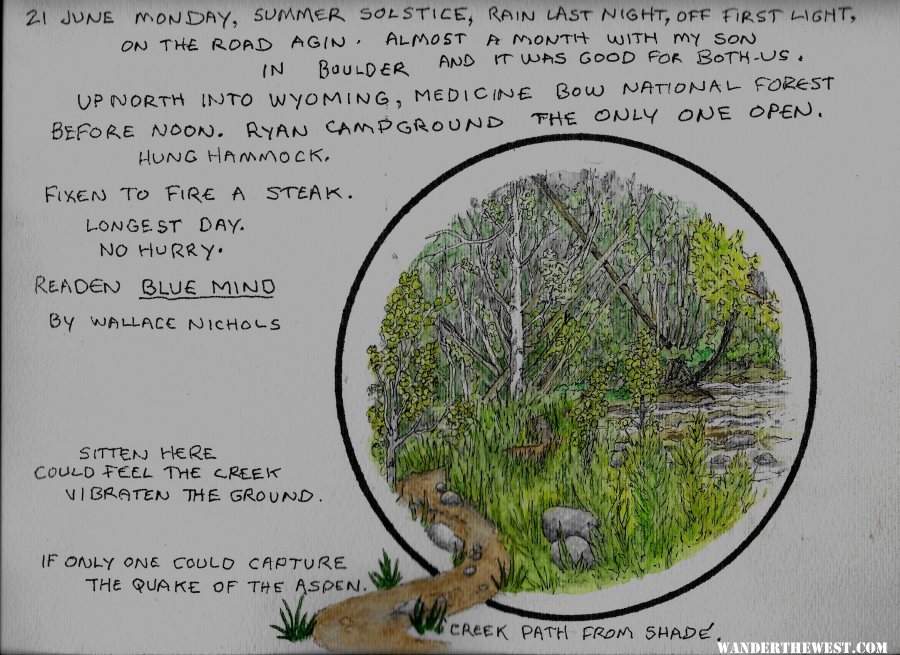 21 JUNE MONDAY, SUMMER SOLSTICE, RAIN LAST NIGHT, OFF FIRST LIGHT,
ON THE ROAD AGIN. ALMOST A MONTH WITH MY SON
IN BOULDER AND IT WAS GOOD FOR BOTH-US.
UP NORTH INTO WYOMING, MEDICINE BOW NATIONAL FOREST
BEFORE NOON. RYAN CAMPGROUND THE ONLY ONE OPEN.
HUNG HAMMOCK.
FIXEN TO FIRE A STEAK.
LONGEST DAY.
NO HURRY.
READEN BLUE MIND
BY WALLACE NICHOLS
SITTEN HERE
COULD FEEL THE CREEK
VIBRATEN THE GROUND.
IF ONLY ONE COULD CAPTURE
THE QUAKE OF THE ASPEN.
CREEK PATH FROM SHADE.
WANDERTHEWEST.COM